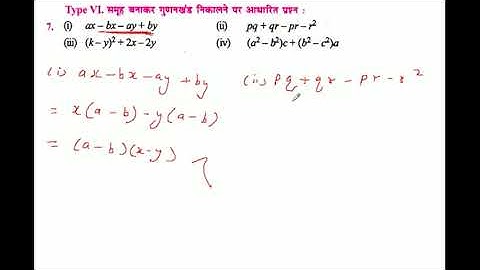 Type VI. समूह बनाकर गुणनखंड निकालने पर आधारित प्रश्न :
7. (i) ax – bx – ay + by (ii) pq + qr – pr – r²
(iii) (k – y)² + 2x – 2y (iv) (a² – b²)c + (b² – c²)a
(i) ax – bx – ay + by (ii) pq + qr – pr – r²
= x(a – b) – y(a – b)
= (a – b)(x – y)